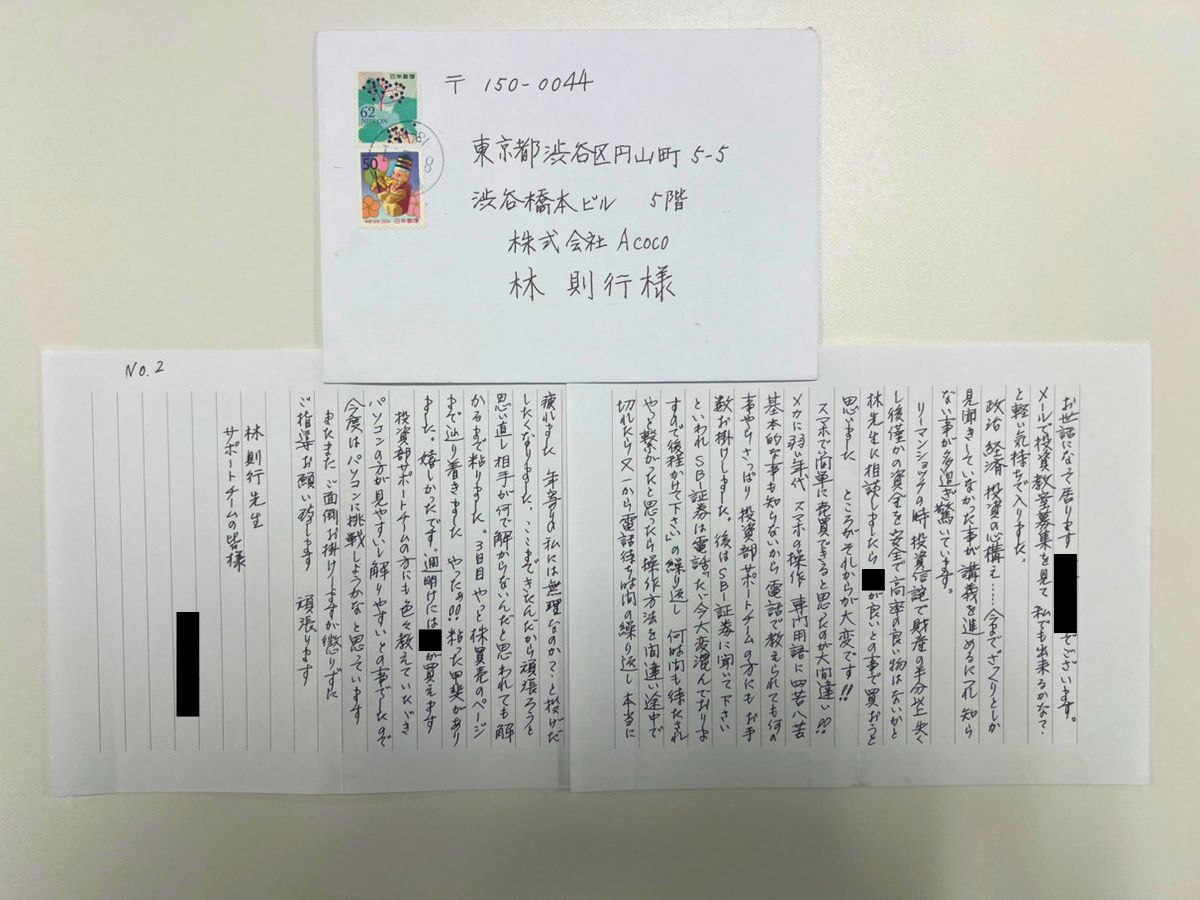 日本郵便
62
NIPPON
50
日本郵便
〒 150-0044
東京都渋谷区円山町 5-5
渋谷橋本ビル 5階
株式会社 Acoco
林 則行様
お世話になって居ります でございます。
メールで投資教室募集を見て 私でも出来るかな?
と軽い気持ちで入りました。
政治 経済 投資の心構え……今までざっくりとしか
見聞きしていなかった事が講義を進めるにつれ 知ら
ない事が多過ぎ驚いています。
リーマンショックの時 投資信託で財産の半分以上失く
し後僅かの資金を安全で高率の良い物はないかと
林先生に相談しましたら が良いとの事で買おうと
思いました ところがそれからが大変です!!
スマホで簡単に売買できると思ったのが大間違い!!
メカに弱い年代 スマホの操作 専門用語に四苦八苦
基本的な事も知らないから 電話で教えられても何の
事やら さっぱり 投資部サポートチームの方にも お手
数お掛けしました。後はSBI証券に聞いて下さい
といわれ SBI証券は電話"ただ今大変混んでおりま
すので後程かけて下さい"の繰り返し 何時間も待たされ
やっと繋がったと思ったら操作方法を間違い途中で
切れたら又一から電話待ち時間の繰り返し 本当に
No.2
疲れました 年寄りの私には無理なのか?と投げだ
したくなりました、ここまできたんだから頑張ろうと
思い直し 相手が何で解からないんだと思われても解
かるまで粘りました。3日目やっと株買売のページ
まで辿り着きました やったぁ!! 粘った甲斐があり
ました。嬉しかったです。週明けには が買えます
投資部サポートチームの方にも色々教えていただき
パソコンの方が見やすいし解りやすいとの事でしたので
今度はパソコンに挑戦しようかなと思っています
またまた ご面倒お掛けしますが懲りずに
ご指導お願い致します 頑張ります
林則行先生
サポートチームの皆様